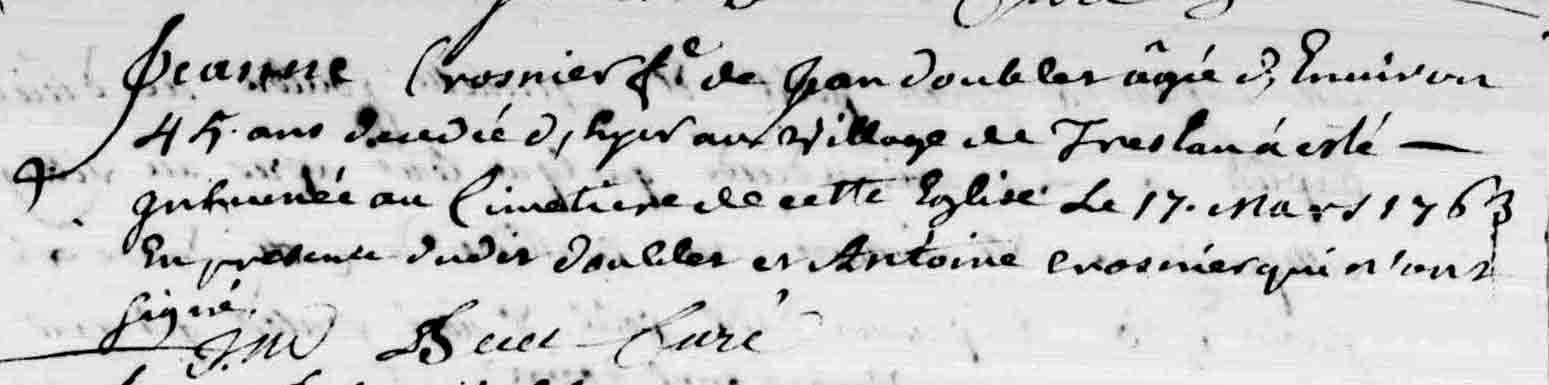 Jeanne Crosnier fe de Jean doublet âgée d'Environ
45 ans décédée d'hyer au village de Treslan á esté —
inhumée au Cimetiere de cette Eglise Le 17. Mars 1763
En présence dudit doublet et Antoine crosnier qui n'ont
signé.
Curé